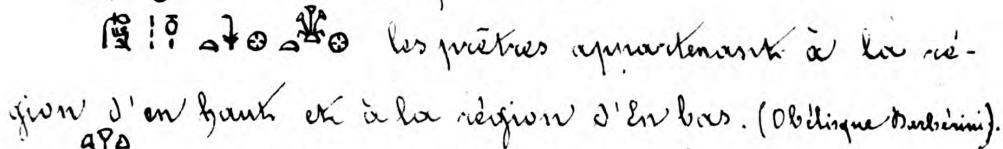 les prêtres appartenant à la ré-
gion d'en haut et à la région d'En bas. (Obélisque Barbérini).